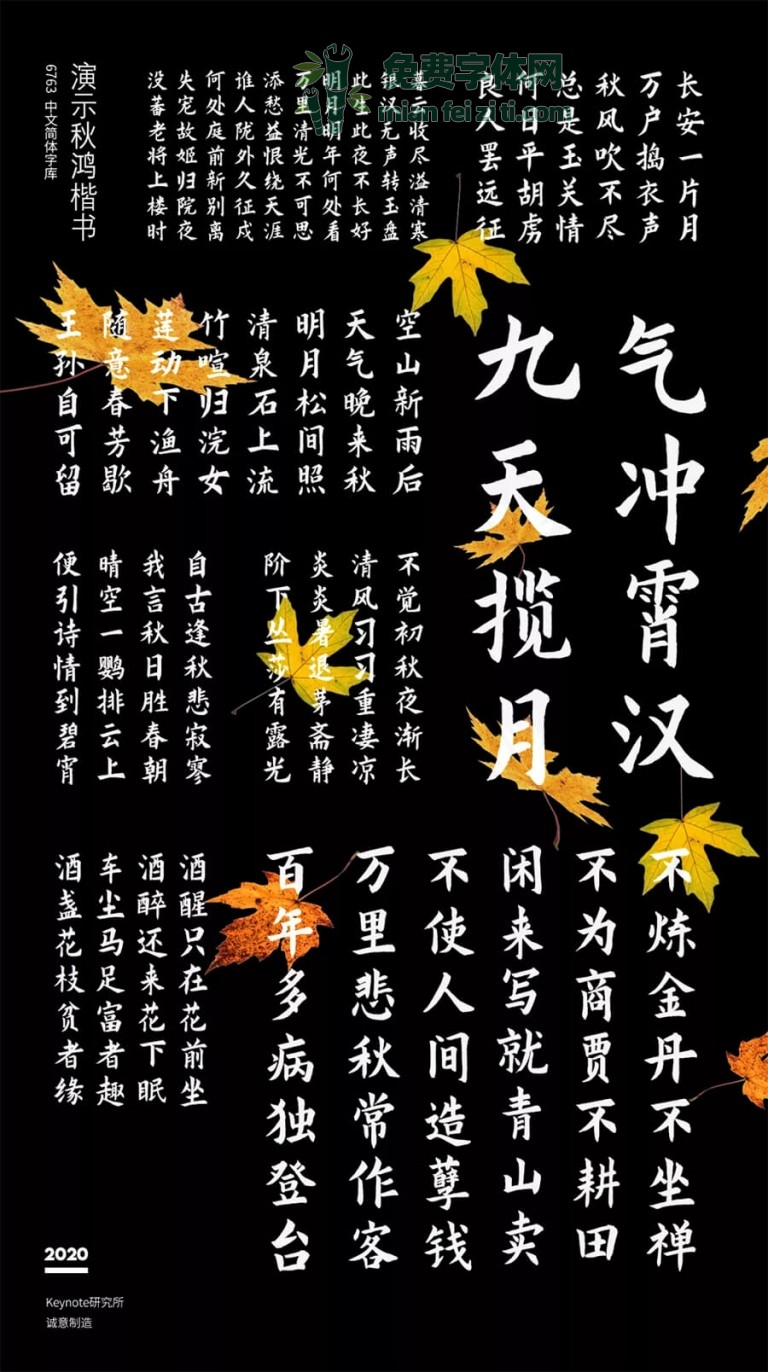 免费字体网
mianfeiziti.com
长安一片月
万户捣衣声
秋风吹不尽
总是玉关情
何日平胡虏
良人罢远征
暮云收尽溢清寒
银汉无声转玉盘
此生此夜不长好
明月明年何处看
万里清光不可思
添愁益恨绕天涯
谁人陇外久征戍
何处庭前新别离
失宠故姬归院夜
没蕃老将上楼时
演示秋鸿楷书
6763 中文简体字库
气冲霄汉
九天揽月
空山新雨后
天气晚来秋
明月松间照
清泉石上流
竹喧归浣女
莲动下渔舟
随意春芳歇
王孙自可留
不觉初秋夜渐长
清风习习重凄凉
炎炎暑退茅斋静
阶下丛莎有露光
自古逢秋悲寂寥
我言秋日胜春朝
晴空一鹦排云上
便引诗情到碧宵
不炼金丹不坐禅
不为商贾不耕田
闲来写就青山卖
不使人间造孽钱
万里悲秋常作客
百年多病独登台
酒醒只在花前坐
酒醉还来花下眠
车尘马足富者趣
酒盏花枝贫者缘
2020
Keynote研究所
诚意制造